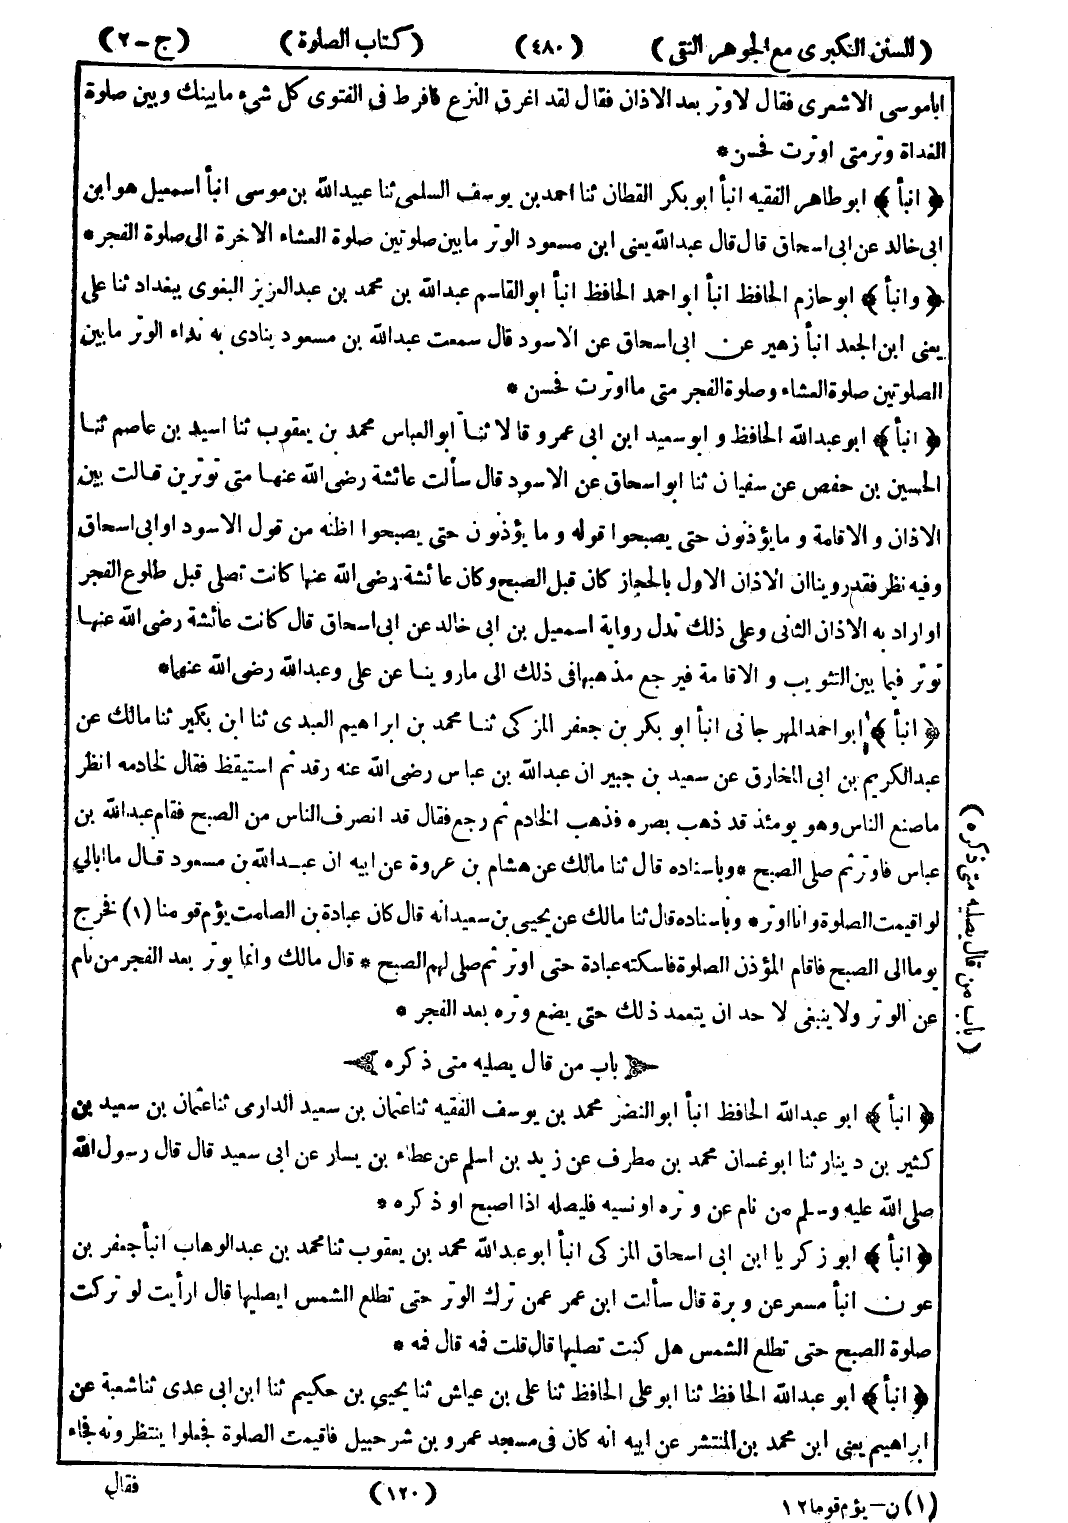 (السنن الكبرى مع الجوهر النقى) (٤٨٠) (كتاب الصلوة) (ج-٢)
اباموسى الاشعرى فقال لاوتر بعد الاذان فقال لقد اغرق النزع فافرط فى الفتوى كل شىء مابينك وبين صلوة
الغداة وترمتى اوترت فحسن*
﴿ انبأ ﴾ ابوطاهر الفقيه انبأ ابوبكر القطان ثنا احمدبن يوسف السلمى ثنا عبيدالله بن موسى انبأ اسمعيل هوابن
ابى خالد عن ابى اسحاق قال قال عبدالله يعنى ابن مسعود الوتر مابين صلوتين صلوة العشاء الاخرة الى صلوة الفجر*
﴿ وانبأ ﴾ ابوحازم الحافظ انبأ ابواحمد الحافظ انبأ ابوالقاسم عبدالله بن محمد بن عبدالعزيز البغوى ببغداد ثنا على
يعنى ابن الجعد انبأ زهير عن ابى اسحاق عن الاسود قال سمعت عبدالله بن مسعود ينادى به نداء الوتر مابين
الصلوتين صلوة العشاء وصلوة الفجر متى مااوترت فحسن *
﴿ انبأ ﴾ ابوعبدالله الحافظ و ابوسعيد ابن ابى عمرو قا لا ثنا ابوالعباس محمد بن يعقوب ثنا اسيد بن عاصم ثنا
الحسين بن حفص عن سفيان ثنا ابواسحاق عن الاسود قال سألت عائشة رضى الله عنها متى توترين قالت بين
الاذان و الاقامة و مايؤذنون حتى يصبحوا قوله و ما يؤذنون حتى يصبحوا اظنه من قول الاسود اوابى اسحاق
وفيه نظر فقدروينا ان الاذان الاول بالحجاز كان قبل الصبح وكان عائشة رضى الله عنها كانت تصلى قبل طلوع الفجر
اواراد به الاذان الثانى وعلى ذلك تدل رواية اسمعيل بن ابى خالد عن ابى اسحاق قال كانت عائشة رضى الله عنها
توتر فيما بين التثويب و الاقا مة فير جع مذهبهافى ذلك الى ماروينا عن على وعبدالله رضى الله عنهما*
﴿ انبأ ﴾ ابواحمدالمهر جانى انبأ ابو بكر بن جعفر المزكى ثنا محمد بن ابراهيم العبدى ثنا ابن بكير ثنا مالك عن
عبدالكريم بن ابى المخارق عن سعيد بن جبير ان عبدالله بن عباس رضى الله عنه رقد ثم استيقظ فقال لخادمه انظر
ماصنع الناس وهو يومئذ قد ذهب بصره فذهب الخادم ثم رجع فقال قد انصرف الناس من الصبح فقام عبدالله بن
عباس فاوتر ثم صلى الصبح *وباسناده قال ثنا مالك عن هشام بن عروة عن ابيه ان عبدالله بن مسعود قال ماابالي
لواقيمت الصلوة وانااوتر* وباسناده قال ثنا مالك عن يحيى بن سعيدانه قال كان عبادة بن الصامت يؤم قو منا (١) فخرج
يوماالى الصبح فاقام المؤذن الصلوة فاسكته عبادة حتى اوتر ثم صلى لهم الصبح * قال مالك وانما يوتر بعد الفجر من نام
عن الوتر ولا ينبغى لا حد ان يتعمد ذلك حتى يضع وتره بعد الفجر *
باب من قال يصليه متى ذكره
﴿ انبأ ﴾ ابو عبدالله الحافظ انبأ ابوالنضر محمد بن يوسف الفقيه ثنا عثمان بن سعيد الدارمى ثنا عثمان بن سعيد بن
كثير بن دينار ثنا ابوغسان محمد بن مطرف عن زيد بن اسلم عن عطاء بن يسار عن ابى سعيد قال قال رسول الله
صلى الله عليه وسلم من نام عن وتره اونسيه فليصله اذا اصبح او ذكره *
﴿ انبأ ﴾ ابو زكر يا ابن ابى اسحاق المزكى انبأ ابوعبدالله محمد بن يعقوب ثنا محمد بن عبدالوهاب انبأ جعفر بن
عون انبأ مسعر عن وبرة قال سألت ابن عمر عمن ترك الوتر حتى تطلع الشمس ايصليها قال ارأيت لو تركت
صلوة الصبح حتى تطلع الشمس هل كنت تصليها قال قلت فمه قال فمه *
﴿ انبأ ﴾ ابو عبدالله الحافظ ثنا ابوعلى الحافظ ثنا على بن عياش ثنا يحيى بن حكيم ثنا ابن ابى عدى ثنا شعبة عن
ابراهيم يعنى ابن محمد بن المنتشر عن ابيه انه كان فى مسجد عمرو بن شرحبيل فاقيمت الصلوة فجعلوا ينتظرونه فجاء
فقال
(١) ن-يؤم قوما١٢ (١٢٠)
(باب من قال يصليه متى ذكره)